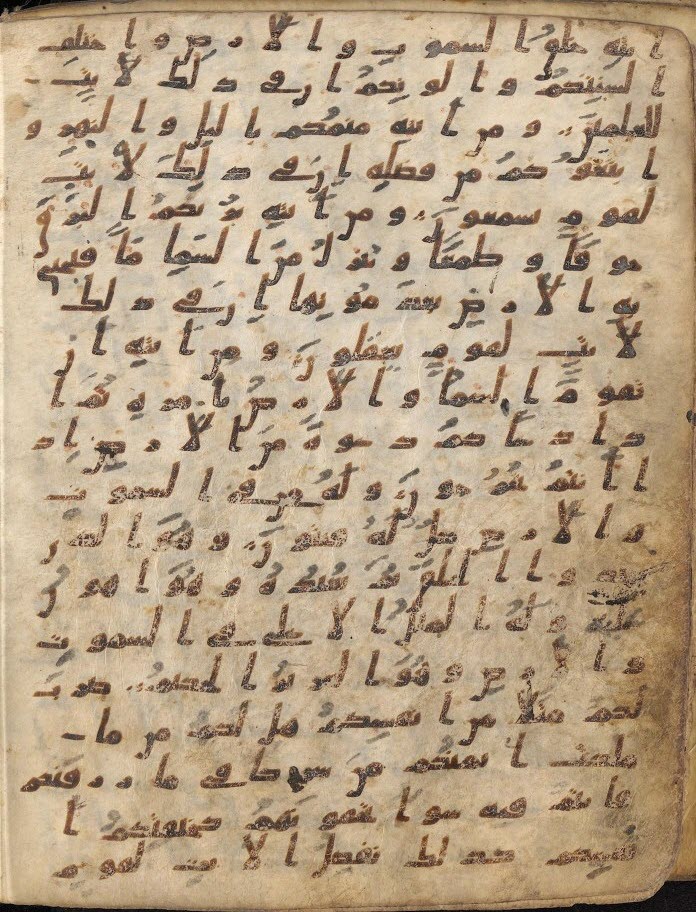 ايته خلق السموت والارض واختلف
السنتكم والونكم ان في ذلك لايت
للعلمين ومن ايته منمكم باليل والنهر و
ابتغوكم من فضله ان في ذلك لايت
لقوم يسمعون ومن ايته يريكم البرق
خوفا وطمعا وينزل من السما ما فيحيي
به الارض بعد موتها ان في ذلك
لايت لقوم يعقلون ومن ايته ان
تقوم السما والارض بامره ثم ا
ذا دعاكم دعوة من الارض اذ
ا انتم تخرجون وله من في السموت
والارض كل له قنتون وهو الذي
يبدوا الخلق ثم يعيده وهو اهون
عليه وله المثل الاعلى في السموت
والارض وهو العزيز الحكيم ضرب
لكم مثلا من انفسكم هل لكم من ما
ملكت ايمنكم من شركا في ما رزقنكم
فانتم فيه سوا تخفونهم كخيفتكم ا
نفسكم كذلك نفصل الايت لقوم